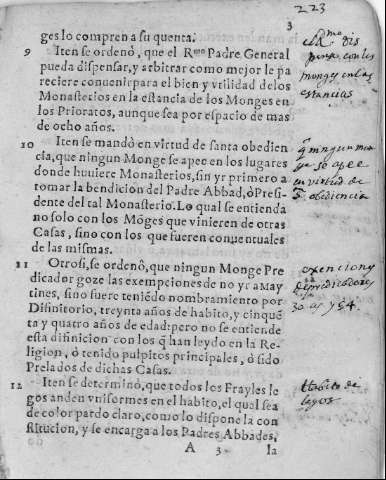 223
3
ges lo compren a su quenta.
9 Iten se ordenò, que el Rmo Padre General
pueda dispensar, y arbitrar como mejor le pa
reciere conuenir para el bien y vtilidad de los
Monasterios en la estancia de los Monges en
los Prioratos, aunque sea por espacio de mas
de ocho años.
10 Iten se mandò en virtud de santa obedien
cia, que ningun Monge se apee en los lugares
donde huuiere Monasterios, sin yr primero a
tomar la bendicion del Padre Abbad, ò Presi-
dente del tal Monasterio. Lo qual se entienda
no solo con los Mõges que vinieren de otras
Casas, sino con los que fueren conuentuales
de las mismas.
11 Otrosi, se ordenò, que ningun Monge Pre
dicador goze las exempciones de no yr a May
tines, sino fuere teniẽdo nombramiento por
Difinitorio, treynta años de habito, y cinquẽ
ta y quatro años de edad: pero no se entiende
esta difinicion con los q̃ han leydo en la Re-
ligion, ò tenido pulpitos principales, ò sido
Prelados de dichas Casas.
12 Iten se determinò, que todos los Frayles le
gos anden vniformes en el habito, el qual sea
de color pardo claro, como lo dispone la con
stitucion, y se encarga a los Padres Abbades,
A 3 la
Rmo dis
pense con los
monges en las
estancias
q̃ ningun mon
ge se apee
en virtud de
sta obediencia
exencion
de predicadores
30 as y 54.
Habito de
legos